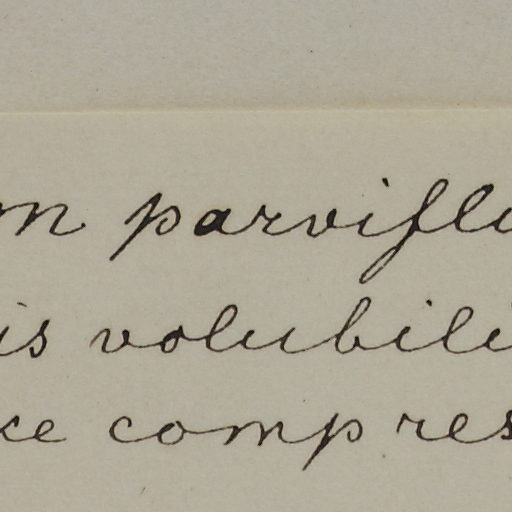 m parviflo
is volubili
ke compres